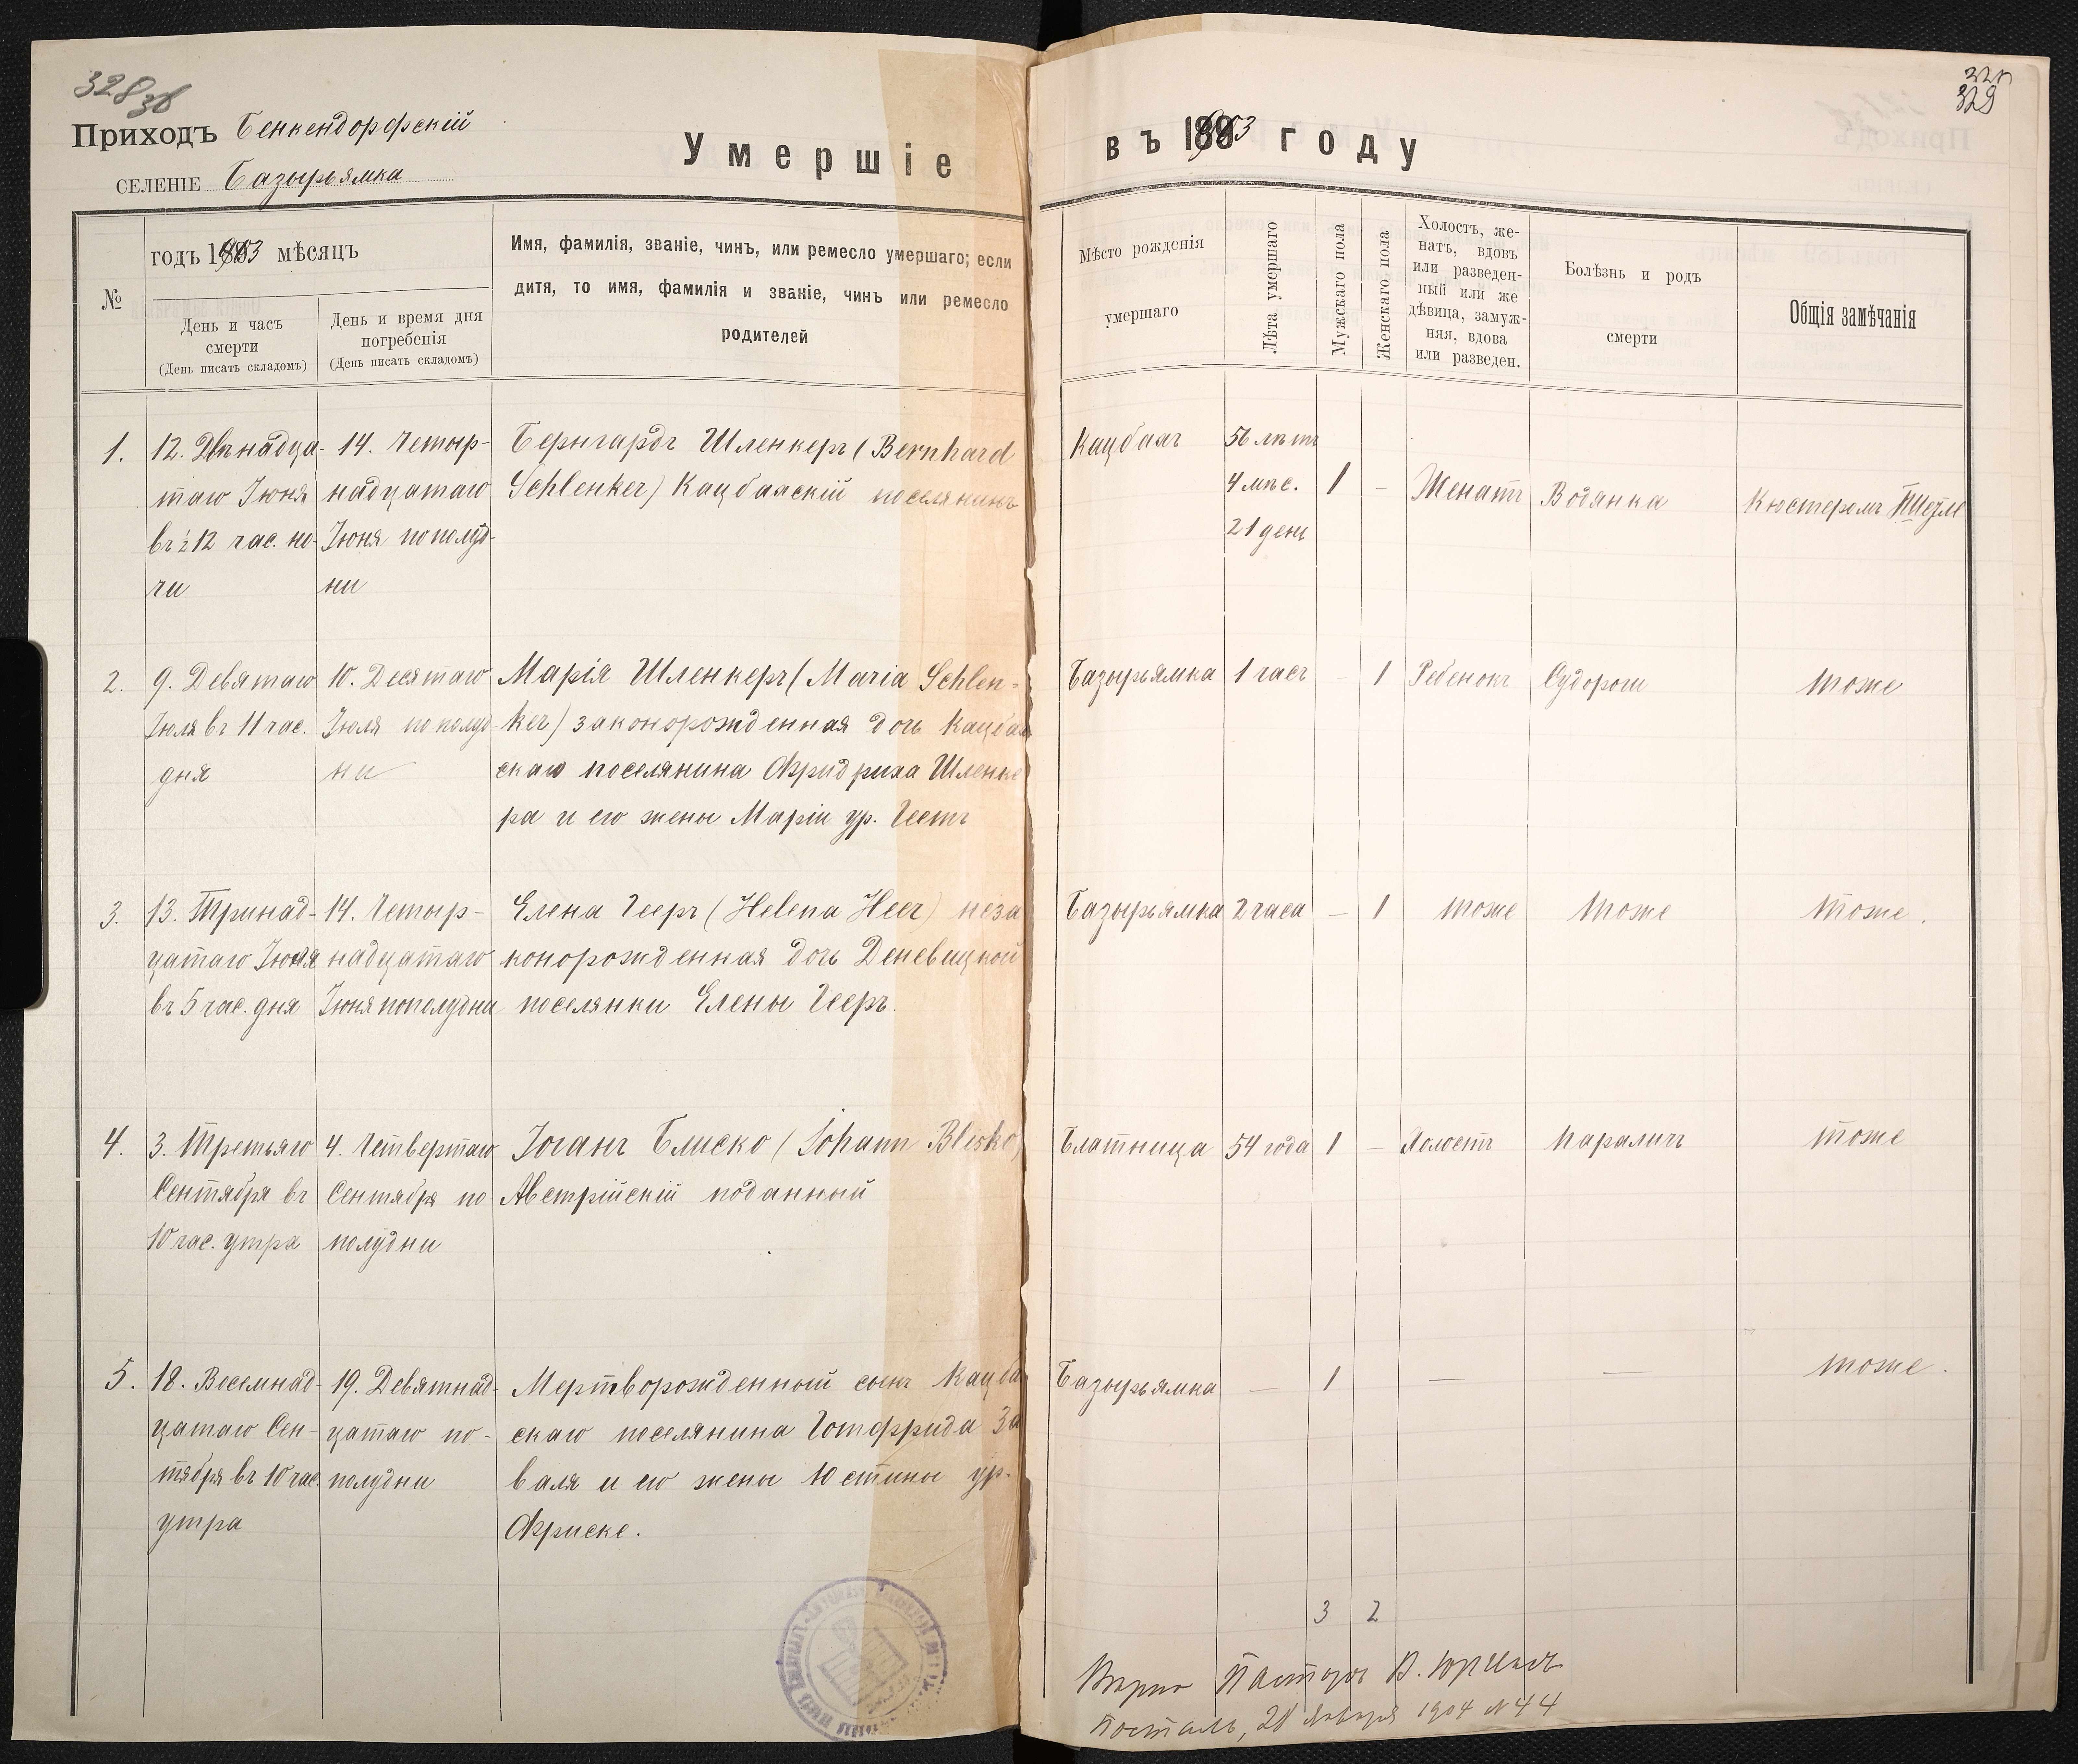 328 зв
Приходъ Бенкендорфскій
СЕЛЕНІЕ Базырьямка
Умершіе
въ 1903 году
329
№
годъ 1903 мѣсяцъ
День и часъ
смерти
(День писать складомъ)
День и время дня
погребенія
(День писать складомъ)
Имя, фамилія, званіе, чинъ, или ремесло умершаго; если
дитя, то имя, фамилія и званіе, чинъ или ремесло
родителей
Мѣсто рожденія
умершаго
Лѣта умершаго
Мужскаго пола
Женскаго пола
Холостъ, же-
натъ, вдовъ
или разведен-
ный или же
дѣвица, замуж-
няя, вдова
или разведен.
Болѣзнь и родъ
смерти
Общія замѣчанія
1.
12. Двѣнадца-
таго Іюня
въ ½ 12 час. но-
чи
14. Четыр-
надцатаго
Іюня пополуд-
ни
Бернгардъ Шленкеръ (Bernhard
Schlenker) Кацбахскій поселянинъ
Кацбахъ
56 лѣтъ
4 мѣс.
21 день
1
–
Женатъ
Водянка
Кюстеромъ
2.
9. Девятаго
Іюля въ 11 час.
дня
10. Десятаго
Іюля пополуд
ни
Марія Шленкеръ (Maria Schlen-
ker) законорожденная дочь Кацбах
скаго поселянина Фридриха Шленке
ра и его жены Маріи ур. Гестъ
Базырьямка
1 часъ
–
1
Ребенокъ
Судороги
тоже
3.
13. Тринад-
цатаго Іюня
въ 5 час. дня
14. Четыр-
надцатаго
Іюня пополудни
Елена Гееръ (Helena Heer) неза
конорожденная дочь Деневицкой
поселянки Елены Гееръ.
Базырьямка
2 часа
–
1
тоже
тоже
тоже.
4.
3. Третьяго
Сентября въ
10 час. утра
4. Четвертаго
Сентября по
полудни
Іоганъ Блиско (Johann Blisko)
Австрійскій поданный
Блатница
54 года
1
–
Холостъ
параличъ
тоже
5.
18. Восемнад-
цатаго Сен-
тября въ 10 час.
утра
19. Девятнад-
цатаго по-
полудни
Мертворожденный сынъ Кацба
скаго поселянина Готфрида За
валя и его жены Юстины ур.
Фриске.
Базырьямка
—
1
—
—
тоже.
3 2
Вѣрно Пасторъ
Посталь, 28 Января 1904 № 44